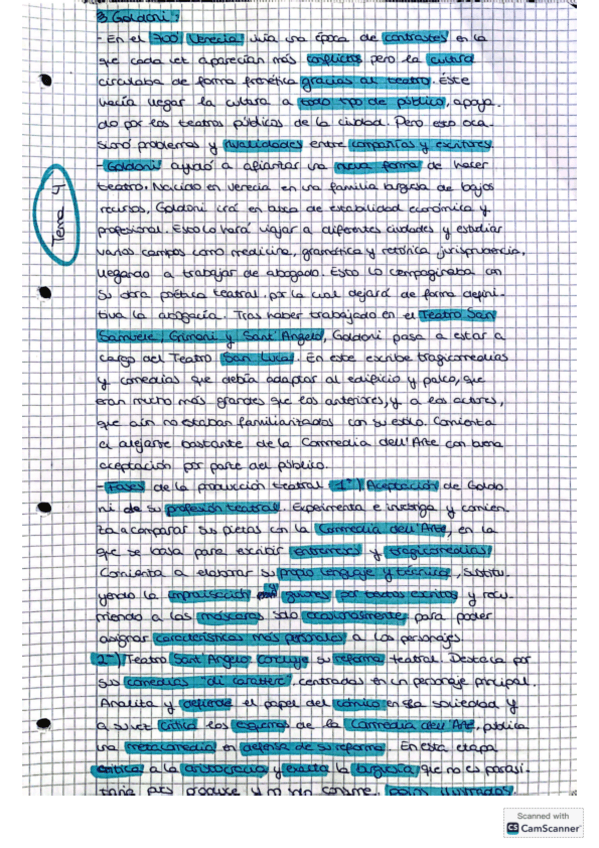 3. Goldoni:
- En el '700 Venecia vivía una época de contrastes en la
que cada vez aparecían más conflictos pero la cultura
circulaba de forma frenética gracias al teatro. Éste
hacía llegar la cultura a todo tipo de público, apoya-
do por los teatros públicos de la ciudad. Pero esto oca-
sionó problemas y rivalidades entre compañías y escritores.
- Goldoni ayudó a afianzar una nueva forma de hacer
teatro. Nacido en Venecia en una familia burguesa de bajos
recursos, Goldoni irá en busca de estabilidad económica y
profesional. Esto lo hará viajar a diferentes ciudades y estudiar
varios campos como medicina, gramática y retórica jurisprudencia,
llegando a trabajar de abogado. Esto lo compaginaba con
su obra poética teatral, por la cual dejará de forma defini-
tiva la abogacía. Tras haber trabajado en el Teatro San
Samuele, Grimani y Sant'Angelo, Goldoni pasa a estar a
cargo del Teatro San Luca. En este escribe tragicomedias
y comedias que debía adaptar al edificio y palco, que
eran mucho más grandes que los anteriores, y a los actores,
que aún no estaban familiarizados con su estilo. Comienza
a alejarse bastante de la Commedia dell'Arte con buena
aceptación por parte del público.
- Fases de la producción teatral 1º) Aceptación de Goldo-
ni de su profesión teatral. Experimenta e investiga y comien-
za a comparar sus piezas con la Commedia dell'Arte, en la
que se basa para escribir entremeses y tragicomedias.
Comienza a elaborar su propio lenguaje y técnica, sustitu-
yendo la improvisación y guiones por textos escritos y recu-
rriendo a las máscaras sólo ocasionalmente para poder
asignar características más personales a los personajes.
2º) Teatro Sant'Angelo concluye su reforma teatral. Destaca por
sus comedias "di carattere", centradas en un personaje principal.
Analiza y defiende el papel del cómico en la sociedad y
a su vez critica los esquemas de la Commedia dell'Arte, publica
una metacomedia en defensa de su reforma. En esta etapa
critica a la aristocracia y exalta la burguesía, que no es parasi-
taria pues produce y no sólo consume,
Tema 4
Scanned with
CS CamScanner